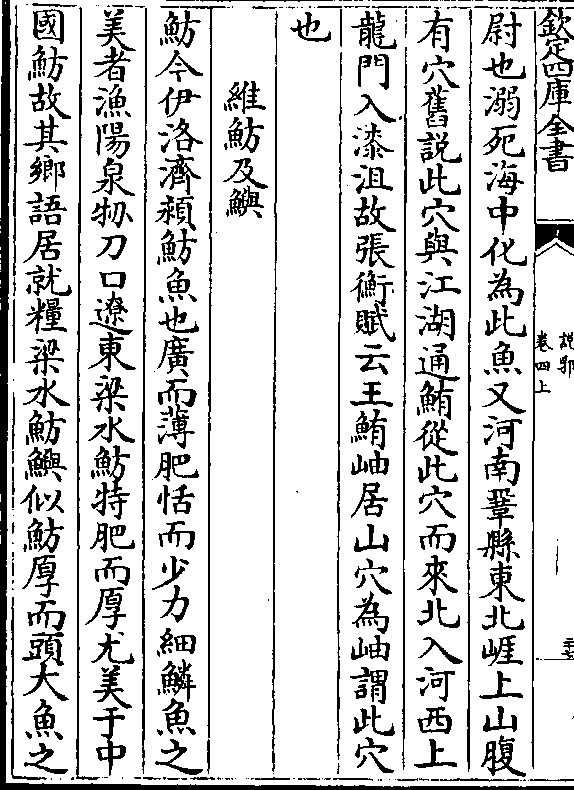 欽定四庫全書
說郛
卷四上
尉也溺死海中化為此魚又河南鞏縣東北崕上山腹
有穴舊說此穴與江湖通鮪從此穴而來北入河西上
龍門入漆沮故張衡賦云王鮪岫居山穴為岫謂此穴
也
維魴及鱮
魴今伊洛濟潁魴魚也廣而薄肥恬而少力細鱗魚之
美者漁陽泉牣刀口遼東梁水魴特肥而厚尤美于中
國魴故其鄉語居就糧梁水魴鱮似魴厚而頭大魚之